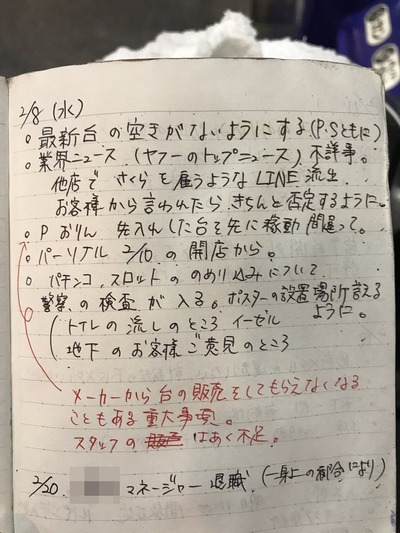 2/8 (水)
○最新台の空きがないようにする(P.Sともに)
○業界ニュース (ヤフーのトップニュース) 不詳事。
他店でさくらを雇うようなLINE流出
お客様から言われたら、きちんと否定するように。
○P おりん 先入れした台を先に稼動 間違って。
○パーソナル 2/10 の開店から。
○パチンコ、スロットののめり込みについて
警察の検査が入る。ポスターの設置場所言える
ように。
トイレの流しのところ イーゼル
地下のお客様ご意見のところ
メーカーから台の販売をしてもらえなくなる
こともある重大事項。
スタッフの はあく不足。
2/20. マネージャー退職 (一身上の都合により)